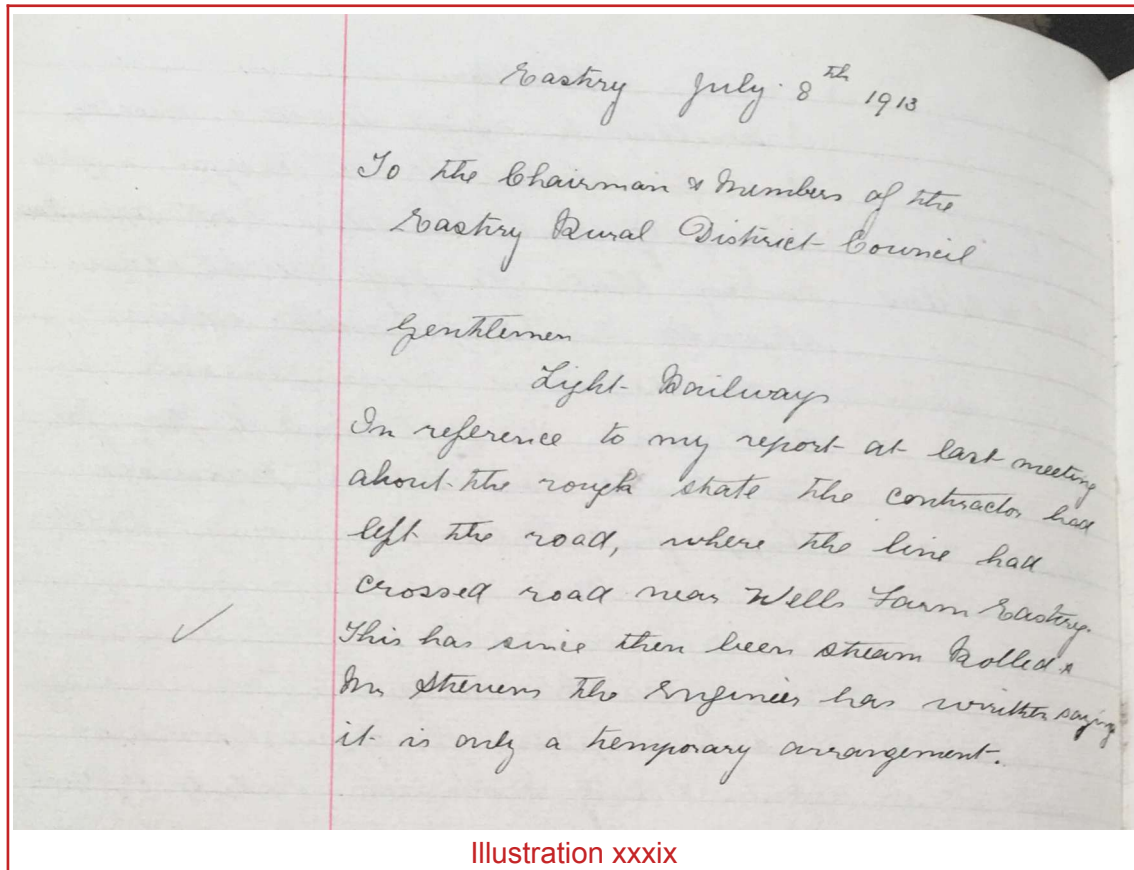 Eastry July 8th 1913
To the Chairman & Members of the
Eastry Rural District Council
Gentlemen
Light Railways
In reference to my report at last meeting
about the rough state the contractor had
left the road, where the line had
crossed road near Wells Farm Eastry.
This has since then been steam Rolled &
Mr Stevens the Engineer has written saying
it is only a temporary arrangement.
Illustration xxxix